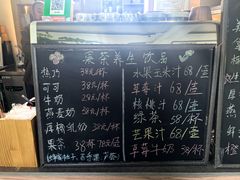 果茶养生饮品
热奶 38元/杯
可可 38元/杯
牛奶 29元/杯
燕麦奶 58元/杯
厚椰乳 /杯
果茶 38杯 78元/壶
水果玉米汁 68/壶
草莓汁 68/壶
核桃汁 68/壶
绿茶 58/杯
芒果汁 68/壶
草莓牛奶 38/杯